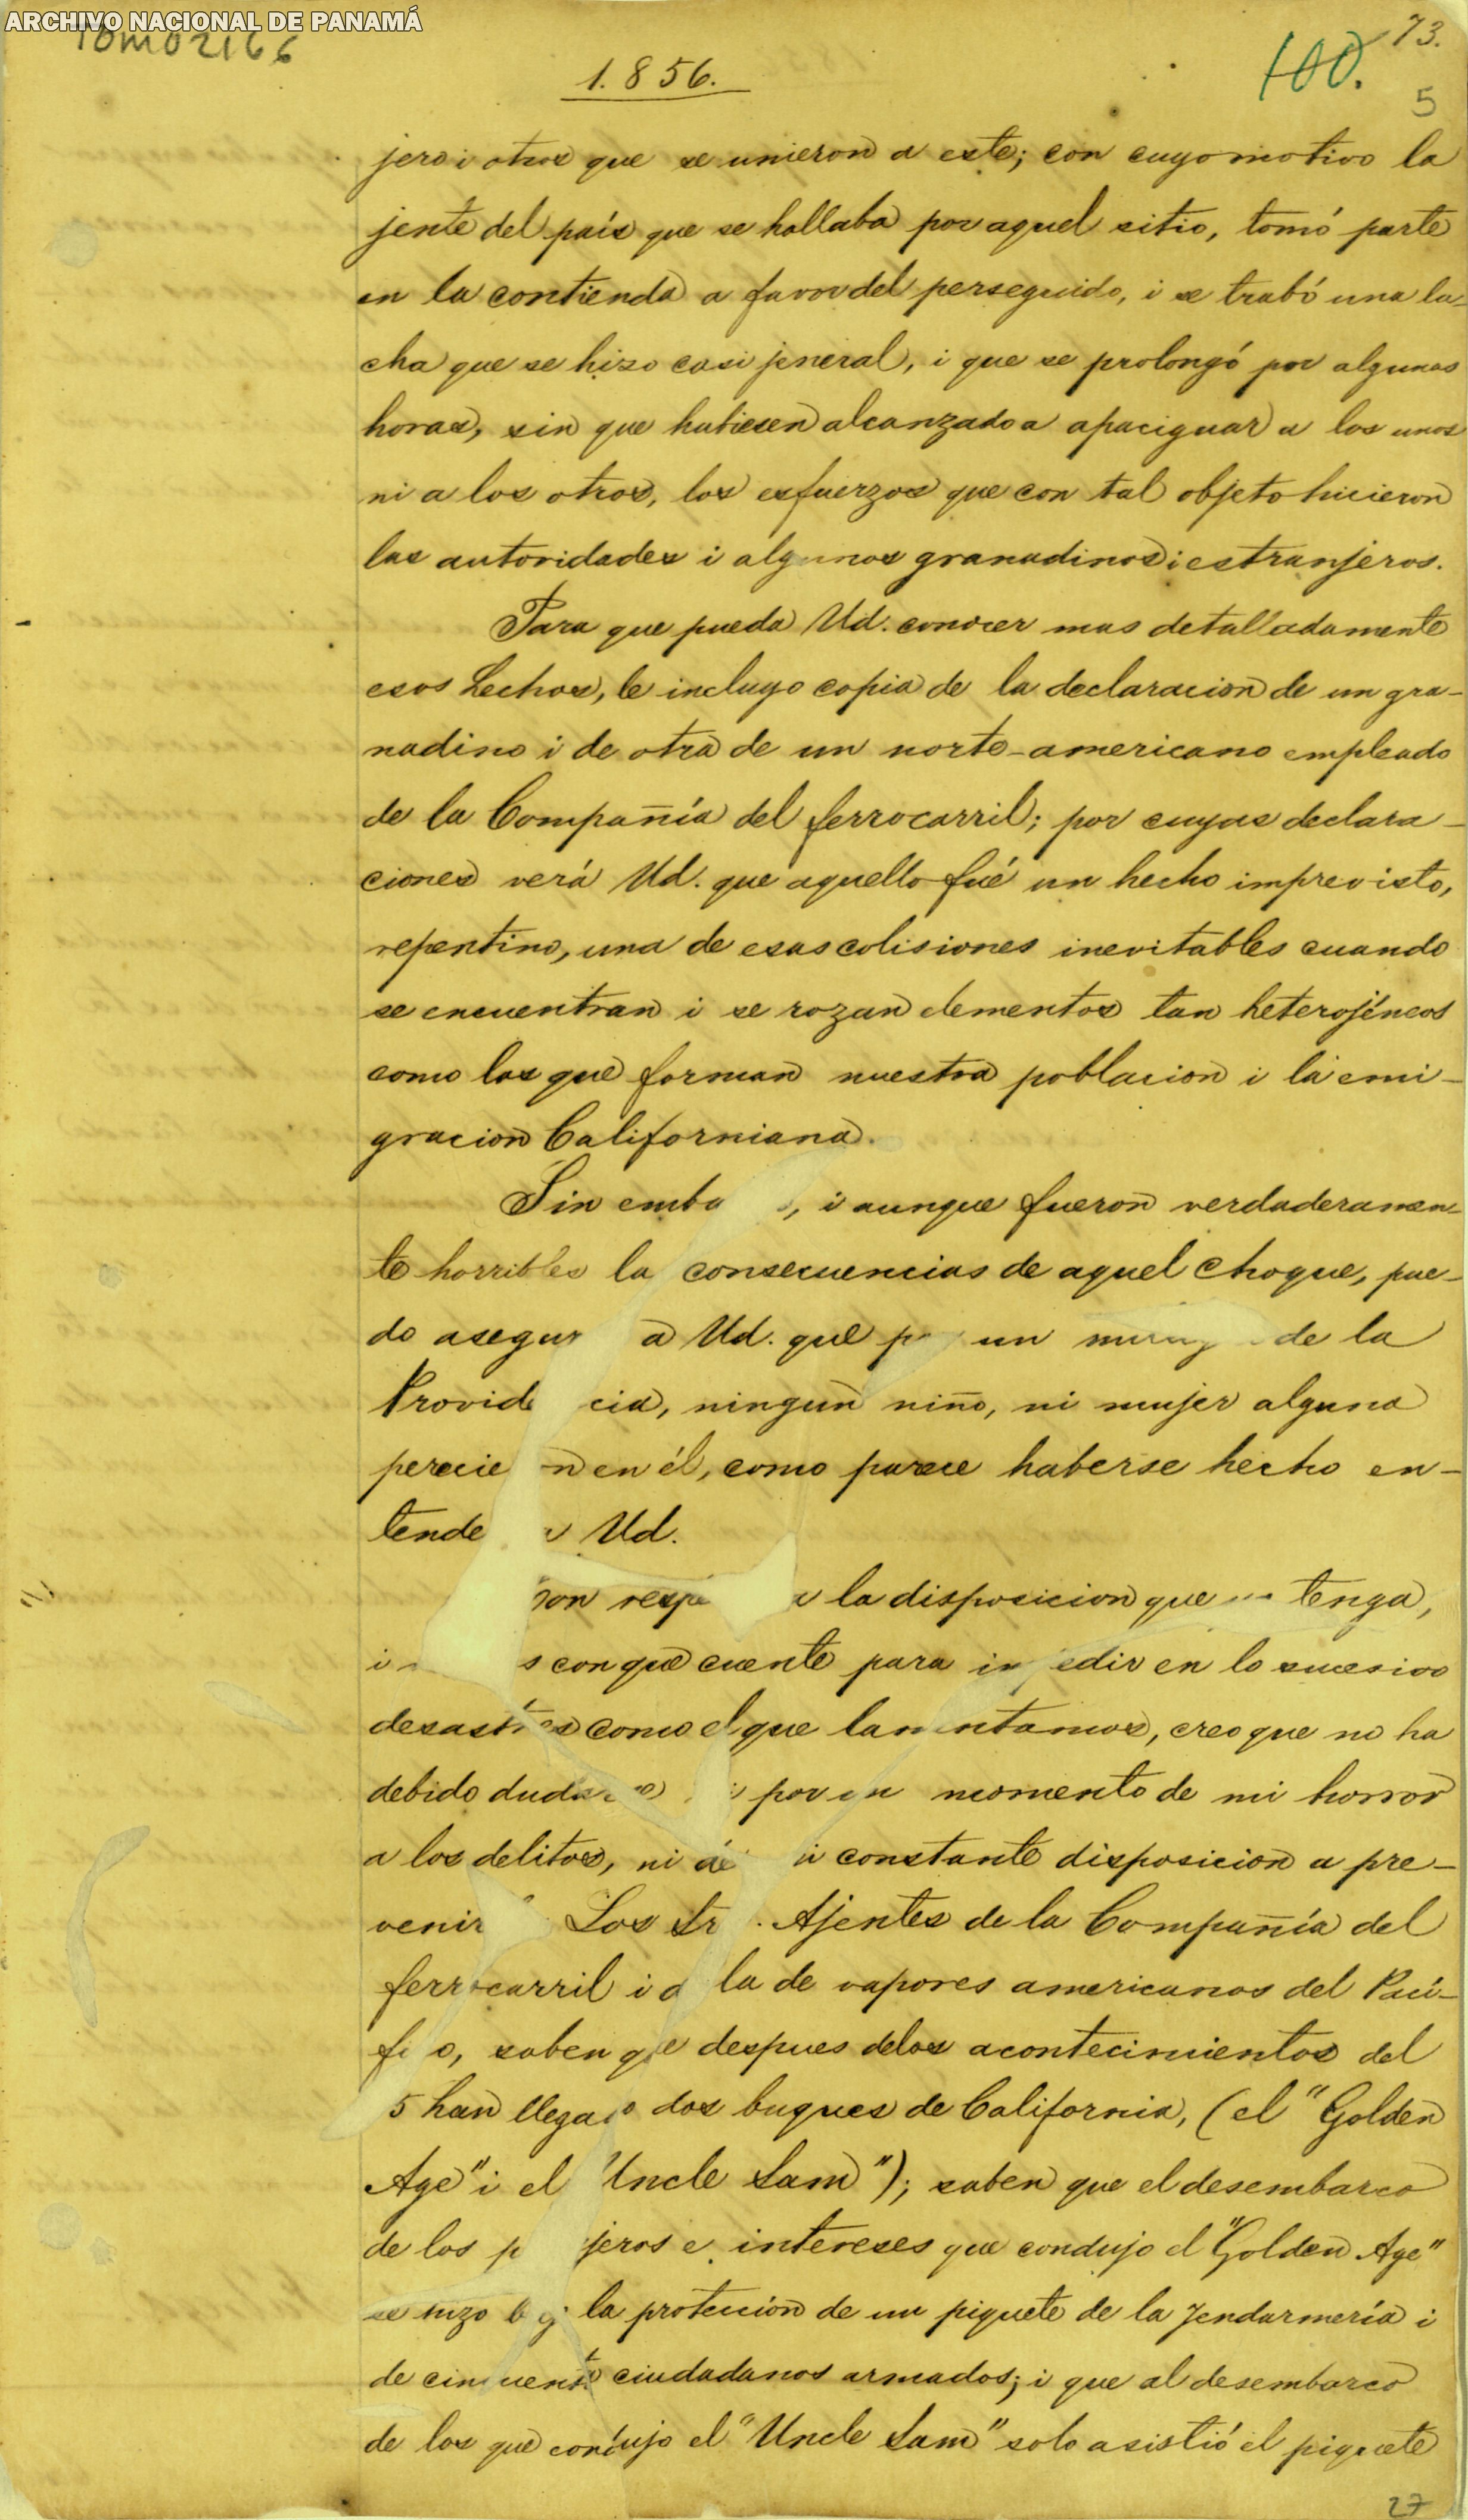 ARCHIVO NACIONAL DE PANAMÁ
Tomo 2166
1.856.
100.
73.
5
jero i otros que se unieron a este; con cuyo motivo la
jente del país que se hallaba por aquel sitio, tomó parte
en la contienda a favor del perseguido, i se trabó una lu-
cha que se hizo casi jeneral, i que se prolongó por algunas
horas, sin que hubiesen alcanzado a apaciguar a los unos
ni a los otros, los esfuerzos que con tal objeto hicieron
las autoridades i algunos granadinos i estranjeros.
Para que pueda Ud. conocer mas detalladamente
esos hechos, le incluyo copia de la declaracion de un gra-
nadino i de otra de un norte-americano empleado
de la Compañía del ferrocarril; por cuyas declara-
ciones verá Ud. que aquello fué un hecho imprevisto,
repentino, una de esas colisiones inevitables cuando
se encuentran i se rozan elementos tan heterojéneos
como los que forman nuestra poblacion i la emi-
gracion Californiana.
Sin emba o, i aunque fueron verdaderamen-
te horribles la consecuencias de aquel choque, pue-
do asegur a Ud. que p un de la
Provid cia, ningun niño, ni mujer alguna
perecie n en él, como parece haberse hecho en-
tende a Ud.
on resp a la disposicion que tenga,
i s con que cuente para impedir en lo sucesivo
desastres como el que lamentamos, creo que no ha
debido duda por un momento de mi horror
a los delitos, ni de i constante disposicion a pre-
venir Los Sr . Ajentes de la Compañía del
ferrocarril i d la de vapores americanos del Pací-
fi o, saben que despues de los acontecimientos del
5 han llegado dos buques de California, (el "Golden
Age" i el "Uncle Sam"); saben que el desembarco
de los p jeros e intereses que condujo el "Golden Age"
se hizo bajo la proteccion de un piquete de la Jendarmería i
de cincuenta ciudadanos armados; i que al desembarco
de los que condujo el "Uncle Sam" solo asistió el piquete
27